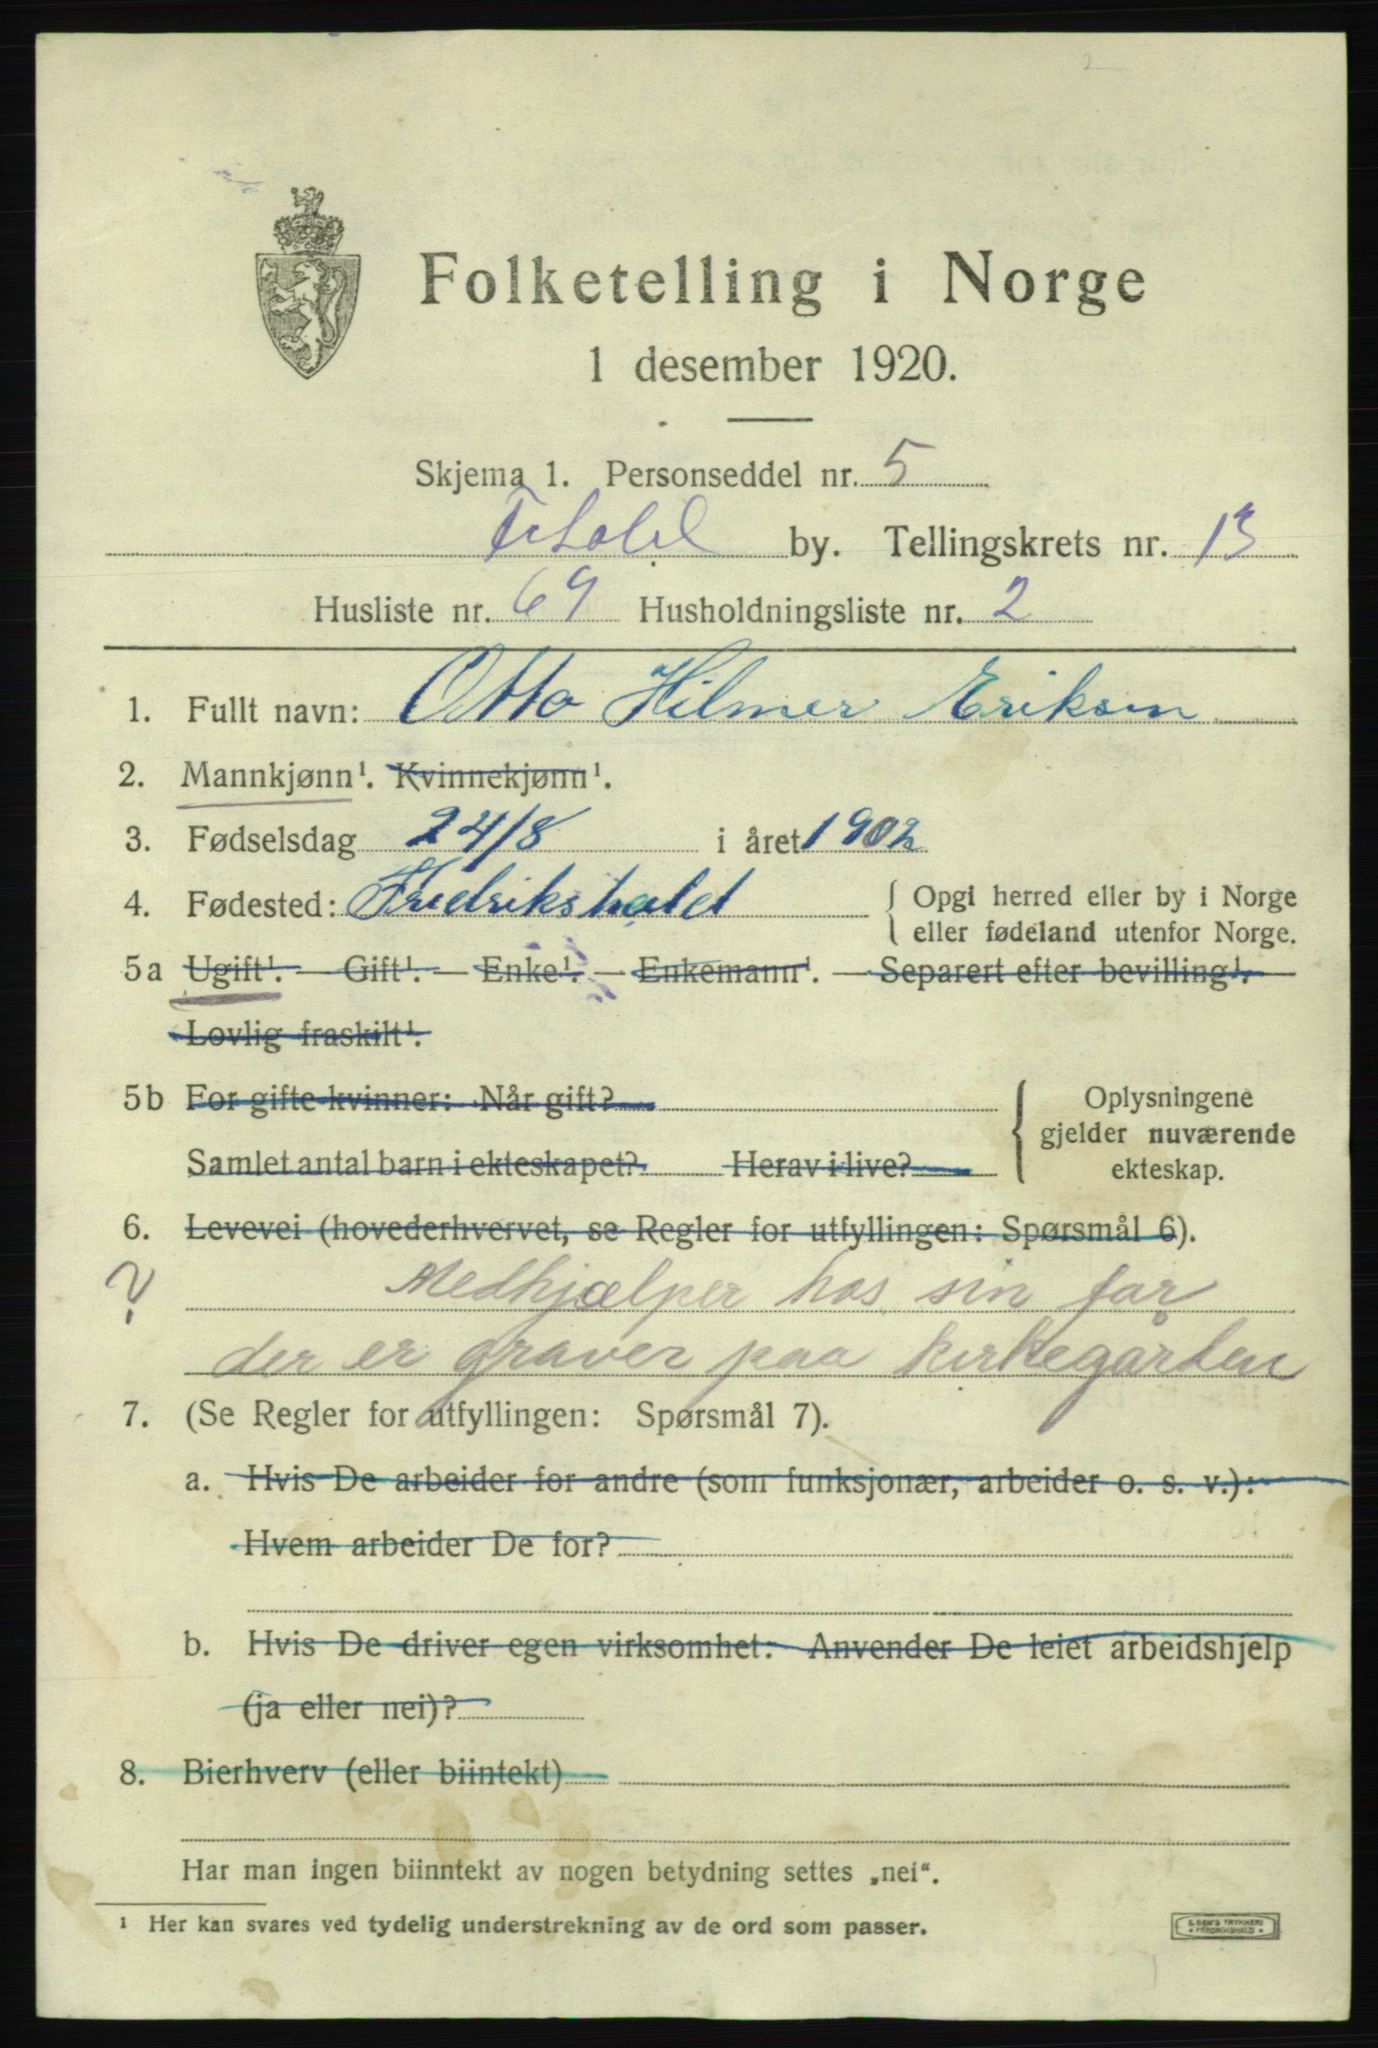 Folketelling i Norge
1 desember 1920.
Skjema 1. Personseddel nr. 5
by. Tellingskrets nr. 13
Husliste nr. 69 Husholdningsliste nr. 2
1. Fullt navn: Otto Hilmer Eriksen
2. Mannkjønn¹. Kvinnekjønn¹.
3. Fødselsdag 24/8 i året 1902
4. Fødested: Fredrikshald { Opgi herred eller by i Norge
eller fødeland utenfor Norge.
5a Ugift¹. — Gift¹. — Enke¹. — Enkemann¹. — Separert efter bevilling¹. —
Lovlig fraskilt¹.
5b For gifte kvinner: Når gift? Oplysningene
gjelder nuværende
Samlet antal barn i ekteskapet? Herav i live? ekteskap.
6. Levevei (hovederhvervet, se Regler for utfyllingen: Spørsmål 6).
? Medhjælper hos sin far
der er graver paa kirkegården
7. (Se Regler for utfyllingen: Spørsmål 7).
a. Hvis De arbeider for andre (som funksjonær, arbeider o. s. v.):
Hvem arbeider De for?
b. Hvis De driver egen virksomhet: Anvender De leiet arbeidshjelp
(ja eller nei)?
8. Bierhverv (eller biintekt)
Har man ingen biinntekt av nogen betydning settes „nei“.
¹ Her kan svares ved tydelig understrekning av de ord som passer.